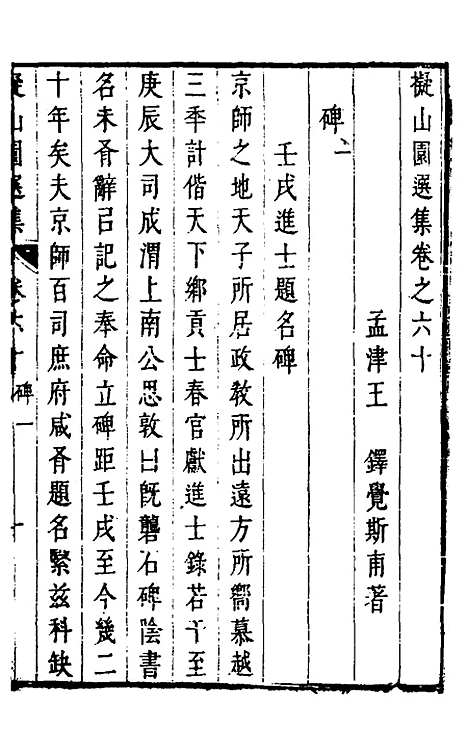 擬山園選集卷之六十
孟津王 鐸覺斯甫著
碑一
壬戌進士題名碑
京師之地天子所居政敎所出遠方所嚮慕越
三季計偕天下鄉貢士春官獻進士錄若干至
庚辰大司成渭上南公思敦曰旣礱石碑陰書
名未胥辭㠯記之奉命立碑距壬戌至今幾二
十年矣夫京師百司庶府咸胥題名緊茲科缺
擬山園選集 卷六十 碑一 一